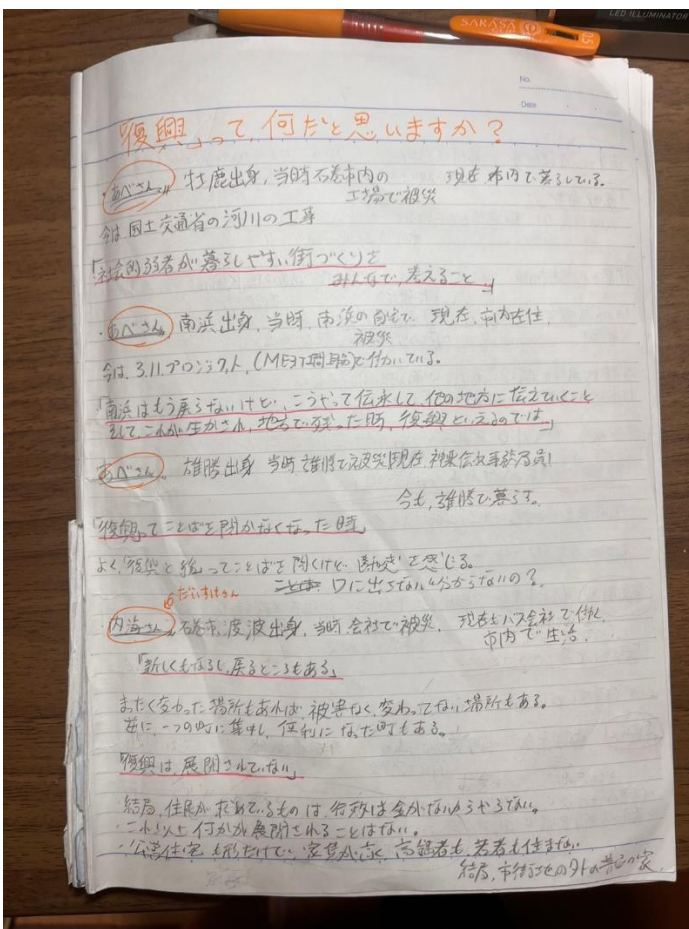 LED ILLUMINATOR
SAKASA 0.5
No.
Date
「復興」って、何だと思いますか？
・あべさん 牡鹿出身、当時石巻市内の工場で被災 現在 市内で暮らしている。
今は国土交通省の河川の工事
「社会的弱者が暮らしやすい街づくりを
みんなで、考えること」
・あべさん 南浜出身、当時、南浜の自宅で被災 現在、市内在住、
今は、3.11プロジェクト、(MEET門脇)で働いている。
「南浜はもう戻らないけど、こうやって伝承して、他の地方に伝えていくこと
そして、これが生かされ、地方で残った時、復興といえるのでは」
あべさん 雄勝出身 当時 雄勝で被災 現在
今も、雄勝で暮らす。
「復興ってことばを聞かなくなった時」
よく、「復興と 」ってことばを聞くけど を感じる。
口に出さないと分からないの？
だいすけさん
・内海さん 石巻市、渡波出身、当時 会社で被災、 現在もバス会社で働く、
市内で生活、
「新しくもなるし、戻るところもある」
まったく変わった場所もあれば、被害なく、変わってない場所もある。
更に、一つの町に集中し、便利になった町もある。
「復興は、展開されていない」
・結局、住民が求めているものは、行政は金がないからやらない。
・これ以上何かが展開されることはない。
・公営住宅も形だけで、家賃が高く、高齢者も、若者も住まない
結局、市街地の外の昔の家